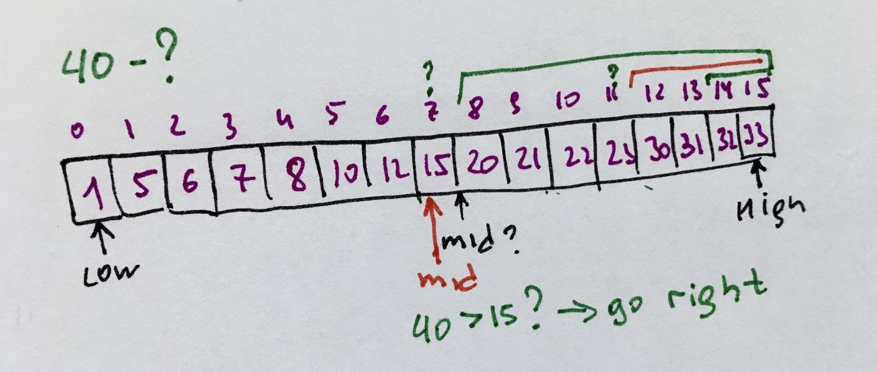 40 - ?
? ?
0 1 2 3 4 5 6 7 8 9 10 11 12 13 14 15
1 5 6 7 8 10 12 15 20 21 22 23 30 31 32 33
LOW mid? High
mid
40 > 15? → go right